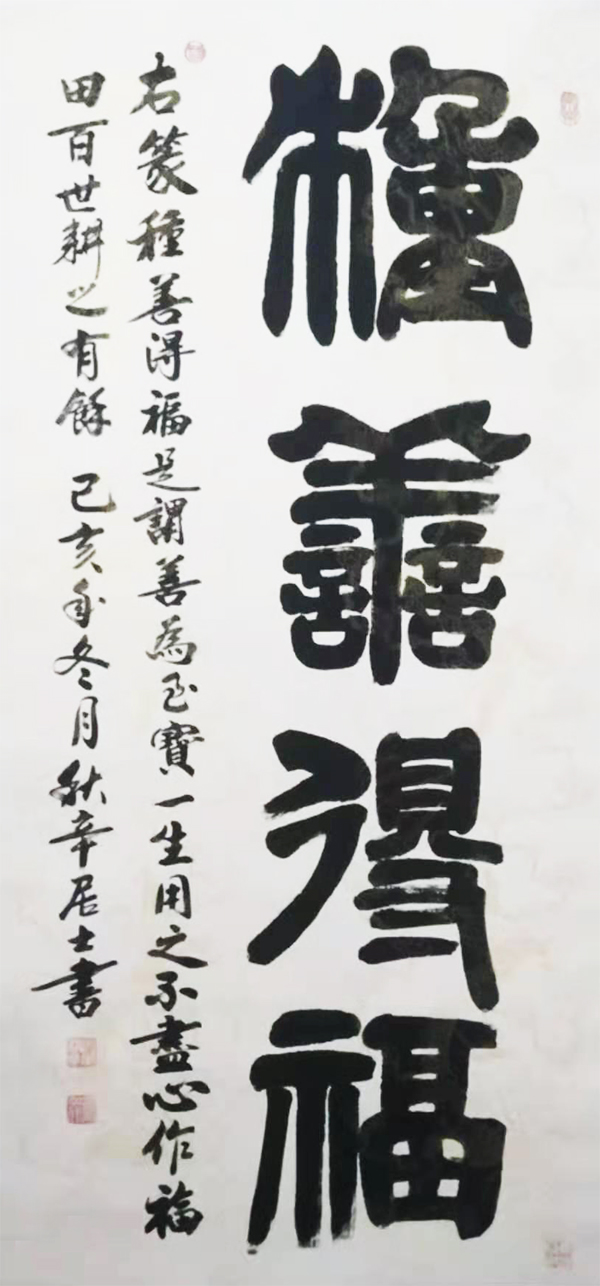 種善得福
右篆種善得福是謂善為至寶一生用之不盡心作福
田百世耕之有餘 己亥年冬月秋辛居士書